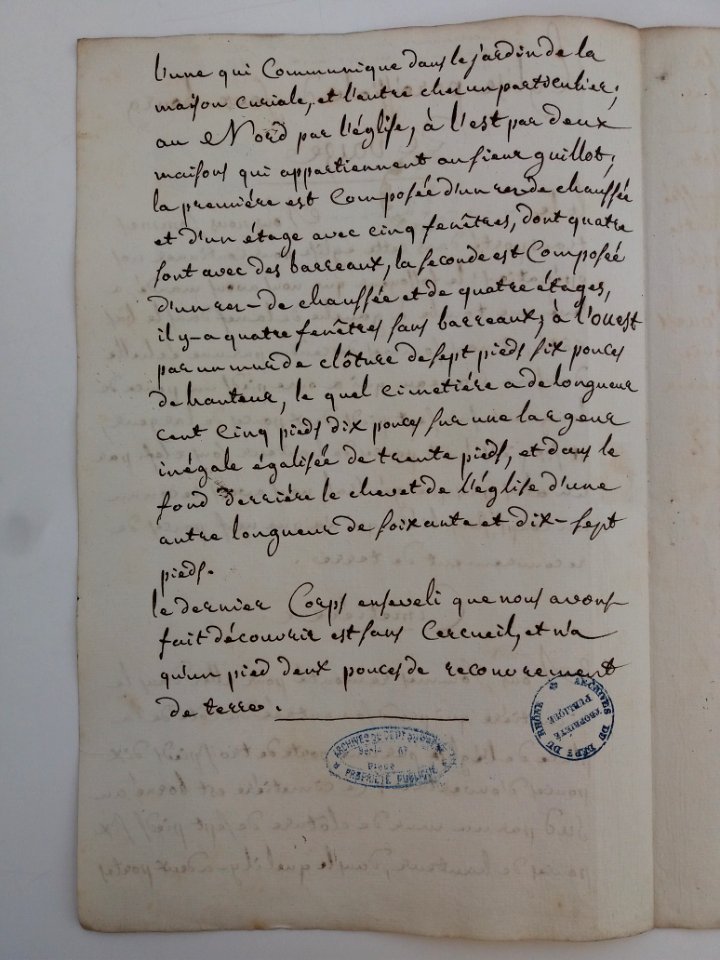 l'une qui Communique dans le jardin de la
maison curiale, et l'autre chez un particulier;
au Nord par l'église, à l'est par deux
maisons qui appartiennent au sieur guillot;
la première est Composée d'un rez de chaussée
et d'un étage avec cinq fenêtres, dont quatre
sont avec des barreaux, la seconde est Composée
d'un rez-de chaussée et de quatre étages,
il y-a quatre fenêtres sans barreaux; à l'ouest
par un mur de clôture de sept pieds six pouces
de hauteur, le quel cimetière a de longueur
cent cinq pieds dix pouces sur une largeur
inégale égalisée de trente pieds, et dans le
fond derrière le chevet de l'église d'une
autre longueur de soixante et dix-sept
pieds.
le dernier Corps enseveli que nous avons
fait découvrir est sans Cercueil, et n'a
qu'un pied deux pouces de recouvrement
de terre.
ARCHIVES DU DEPT DU RHÔNE
PROPRIÉTÉ
PUBLIQUE
PROPRIÉTÉ PUBLIQUE